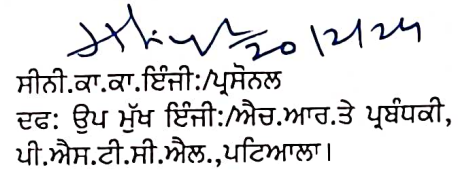 20/2/24
ਸੀਨੀ.ਕਾ.ਕਾ.ਇੰਜੀ:/ਪ੍ਰਸੋਨਲ
ਦਫ: ਉਪ ਮੁੱਖ ਇੰਜੀ:/ਐਚ.ਆਰ.ਤੇ ਪ੍ਰਬੰਧਕੀ,
ਪੀ.ਐਸ.ਟੀ.ਸੀ.ਐਲ.,ਪਟਿਆਲਾ।